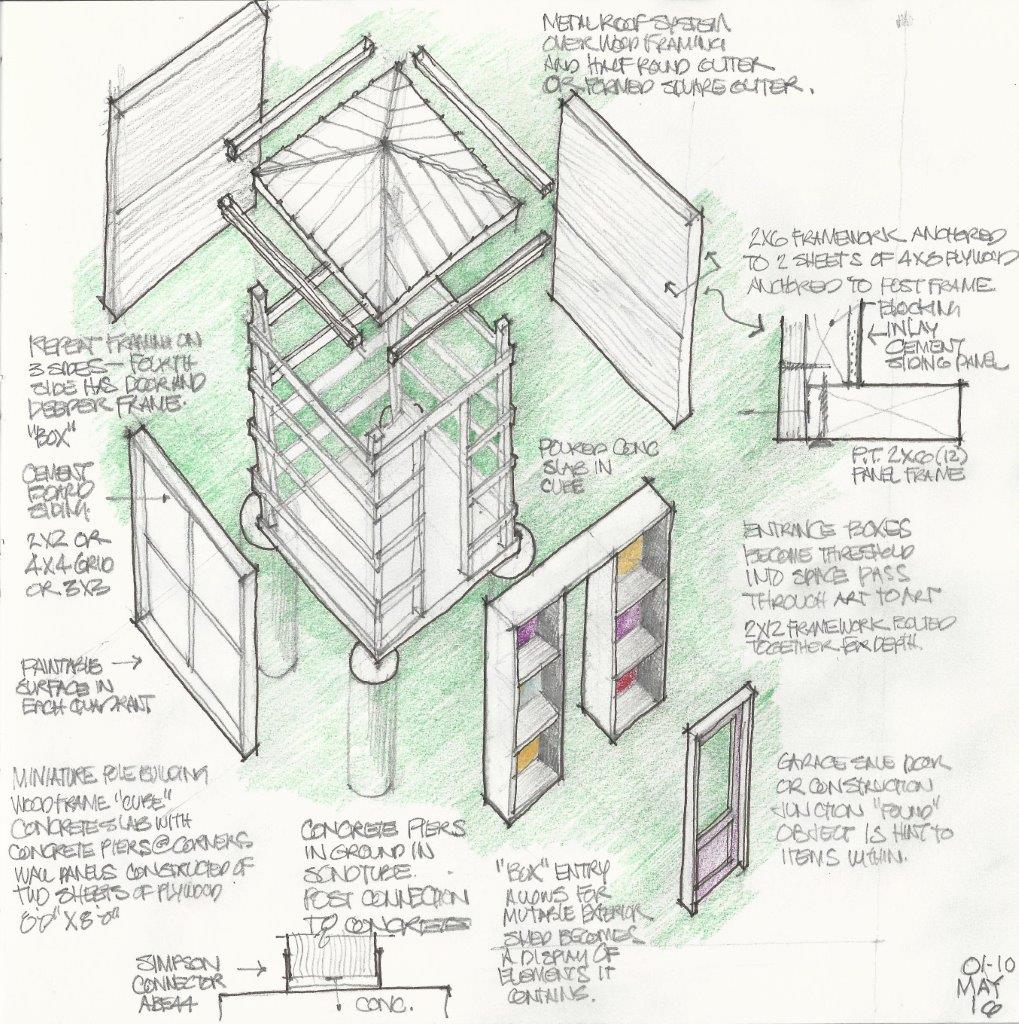 METAL ROOF SYSTEM
OVER WOOD FRAMING
AND HALF ROUND GUTTER
OR FORMED SQUARE GUTTER.
2X6 FRAMEWORK ANCHORED
TO 2 SHEETS OF 4X8 PLYWOOD
ANCHORED TO POST FRAME
BLOCKING
INLAY
CEMENT
SIDING PANEL
P.T. 2X6(12)
PANEL FRAME
REPEAT FRAMING ON
3 SIDES - FOURTH
SIDE HAS DOOR AND
DEEPER FRAME.
"BOX"
CEMENT
BOARD
SIDING
2X2 OR
4X4 GRID
OR 3X3
POURED CONC
SLAB IN
CUBE
ENTRANCE BOXES
BECOME THRESHOLD
INTO SPACE PASS
THROUGH ART TO ART
2X12 FRAMEWORK BOLTED
TOGETHER FOR DEPTH.
PAINTABLE
SURFACE IN
EACH QUADRANT.
GARAGE SALE DOOR
OR CONSTRUCTION
JUNCTION "FOUND"
OBJECT IS HINT TO
ITEMS WITHIN.
MINIATURE POLE BUILDING
WOOD FRAME "CUBE"
CONCRETE SLAB WITH
CONCRETE PIERS @ CORNERS
WALL PANELS CONSTRUCTED OF
TWO SHEETS OF PLYWOOD
8'0" X 8'0"
CONCRETE PIERS
IN GROUND IN
SONOTUBE.
POST CONNECTION
TO CONCRETE
"BOX" ENTRY
ALLOWS FOR
MUTABLE EXTERIOR
SHED BECOMES
A DISPLAY OF
ELEMENTS IT
CONTAINS.
SIMPSON
CONNECTOR
ABE44
CONC.
01-10
MAY
16